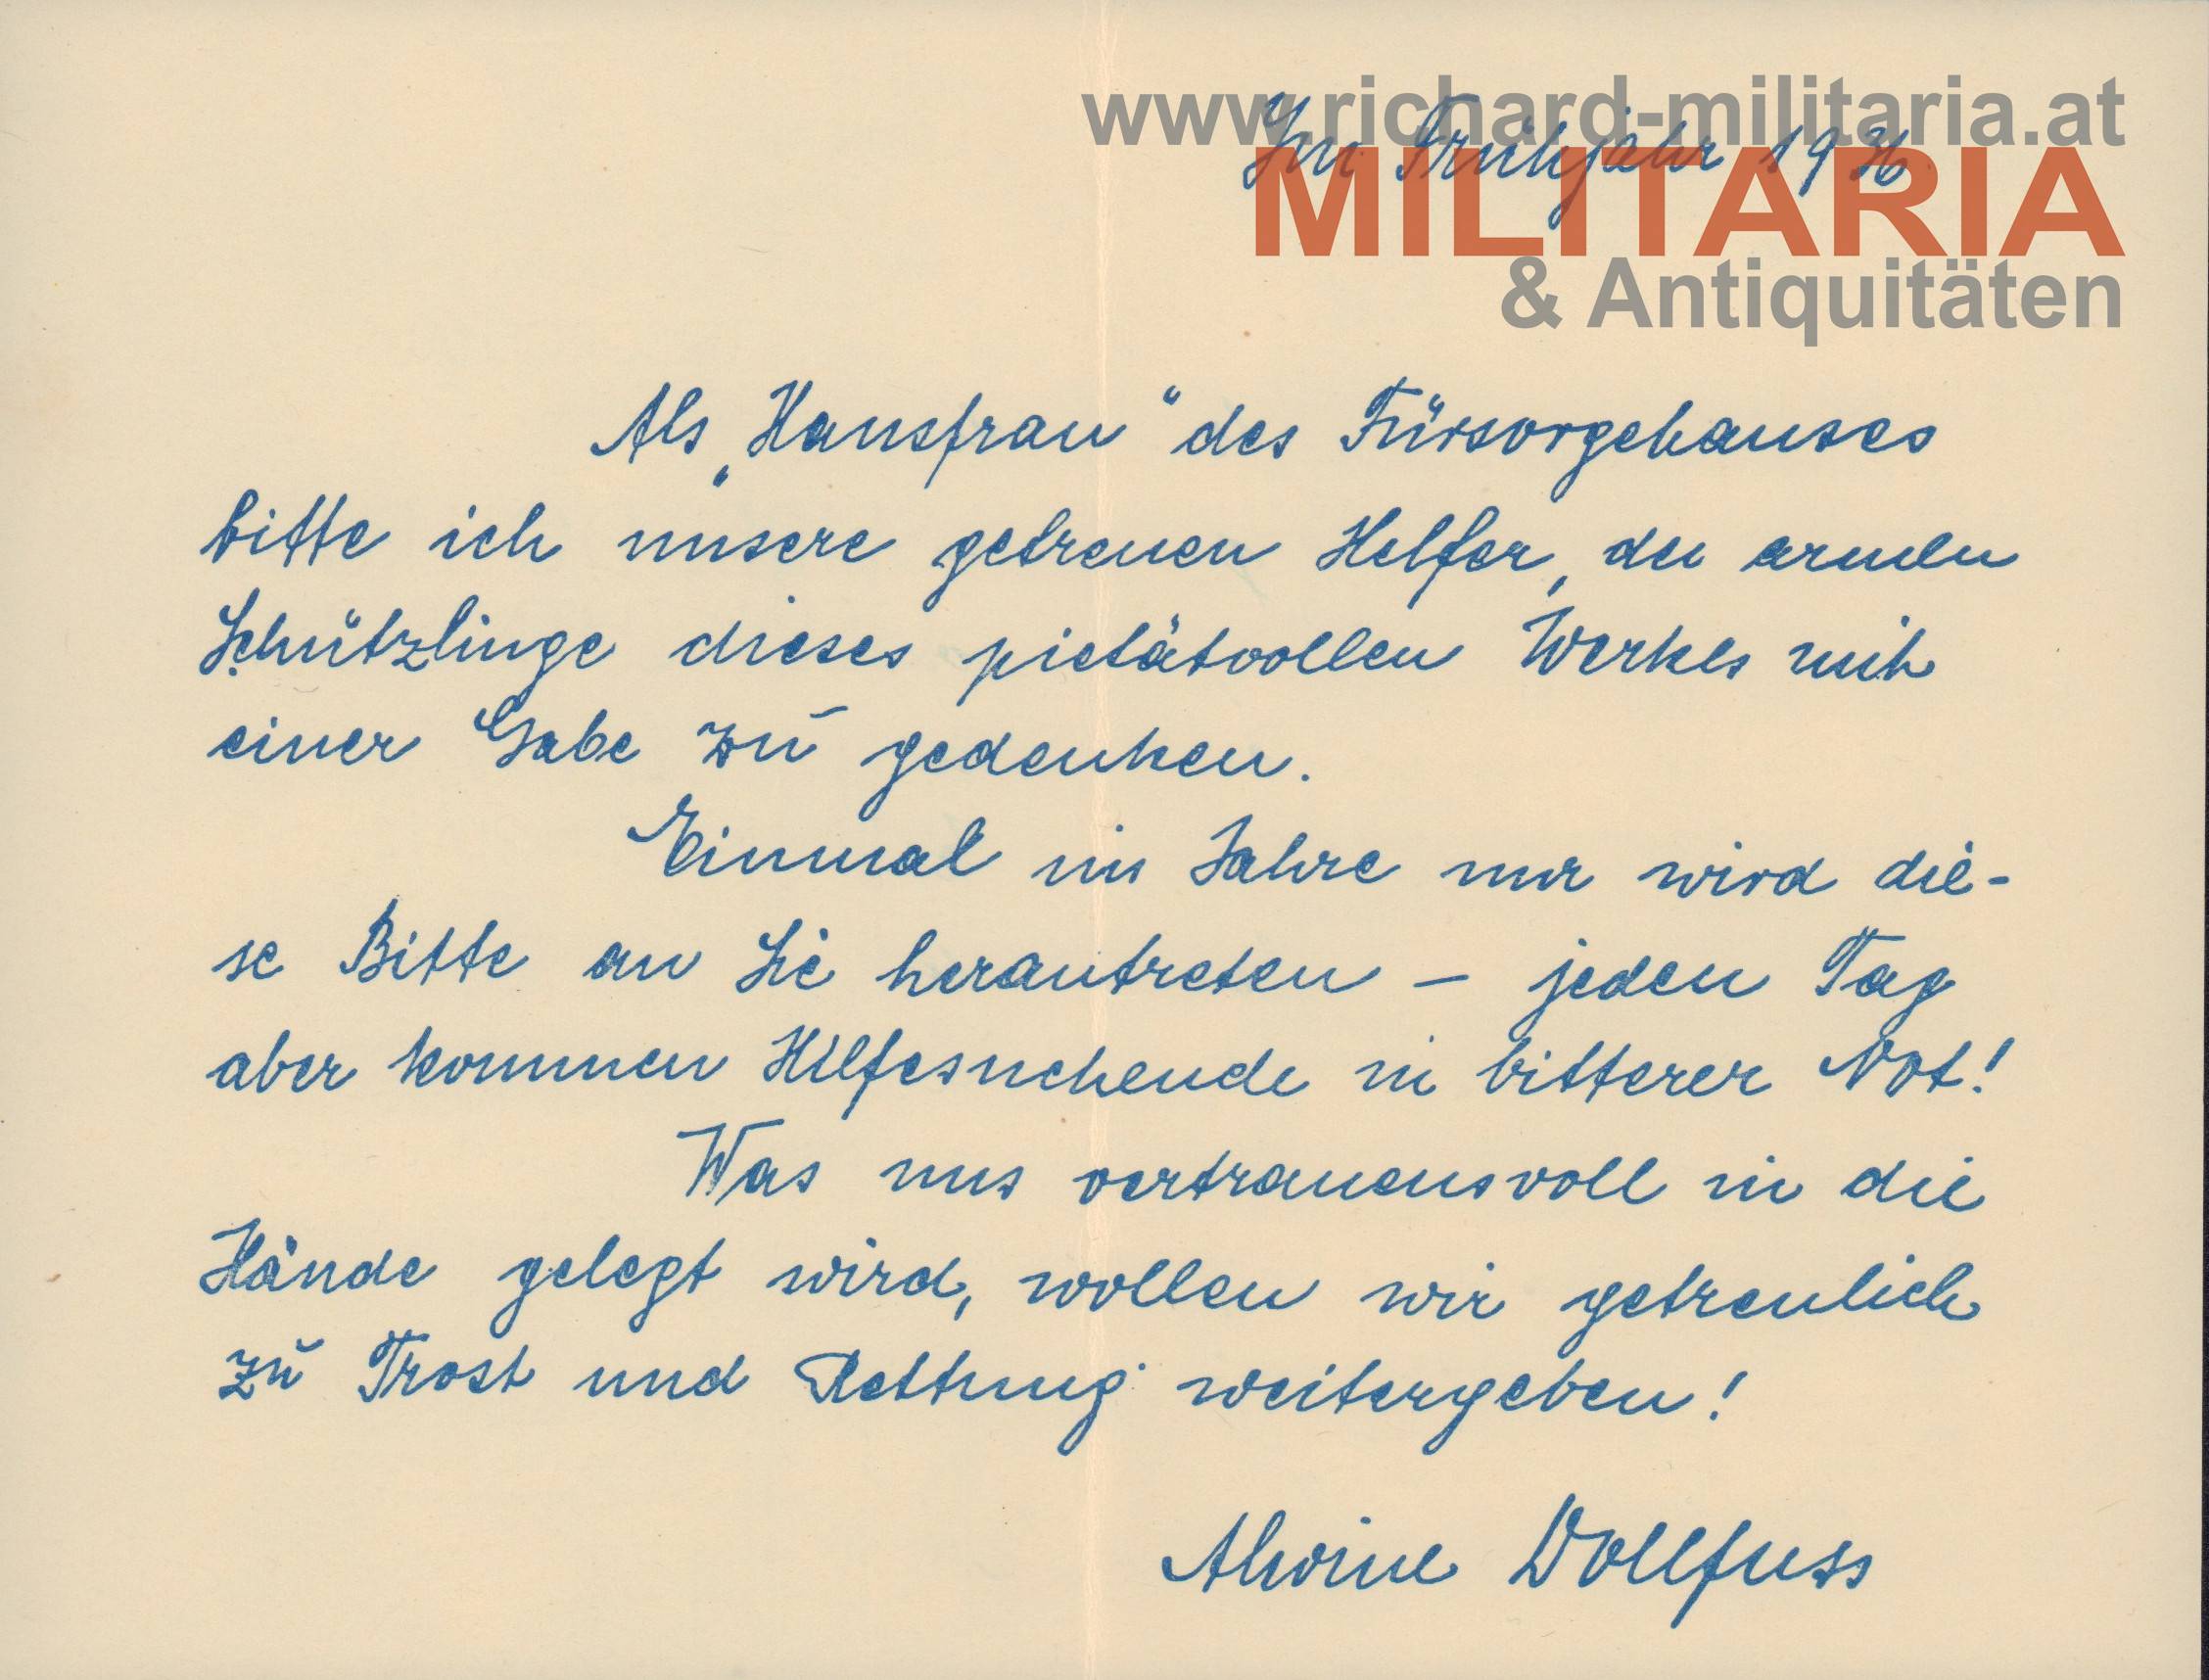 www.richard-militaria.at
Im Frühjahr 1936
MILITARIA
& Antiquitäten
Als „Hausfrau“ des Fürsorgehauses
bitte ich unsere getreuen Helfer, der armen
Schützlinge dieses pietätvollen Werkes mit
einer Gabe zu gedenken.
Einmal im Jahre nur wird die-
se Bitte an Sie herantreten – jeden Tag
aber kommen Hilfesuchende in bitterer Not!
Was uns vertrauensvoll in die
Hände gelegt wird, wollen wir getreulich
zu Trost und Rettung weitergeben!
Alwine Dollfuss